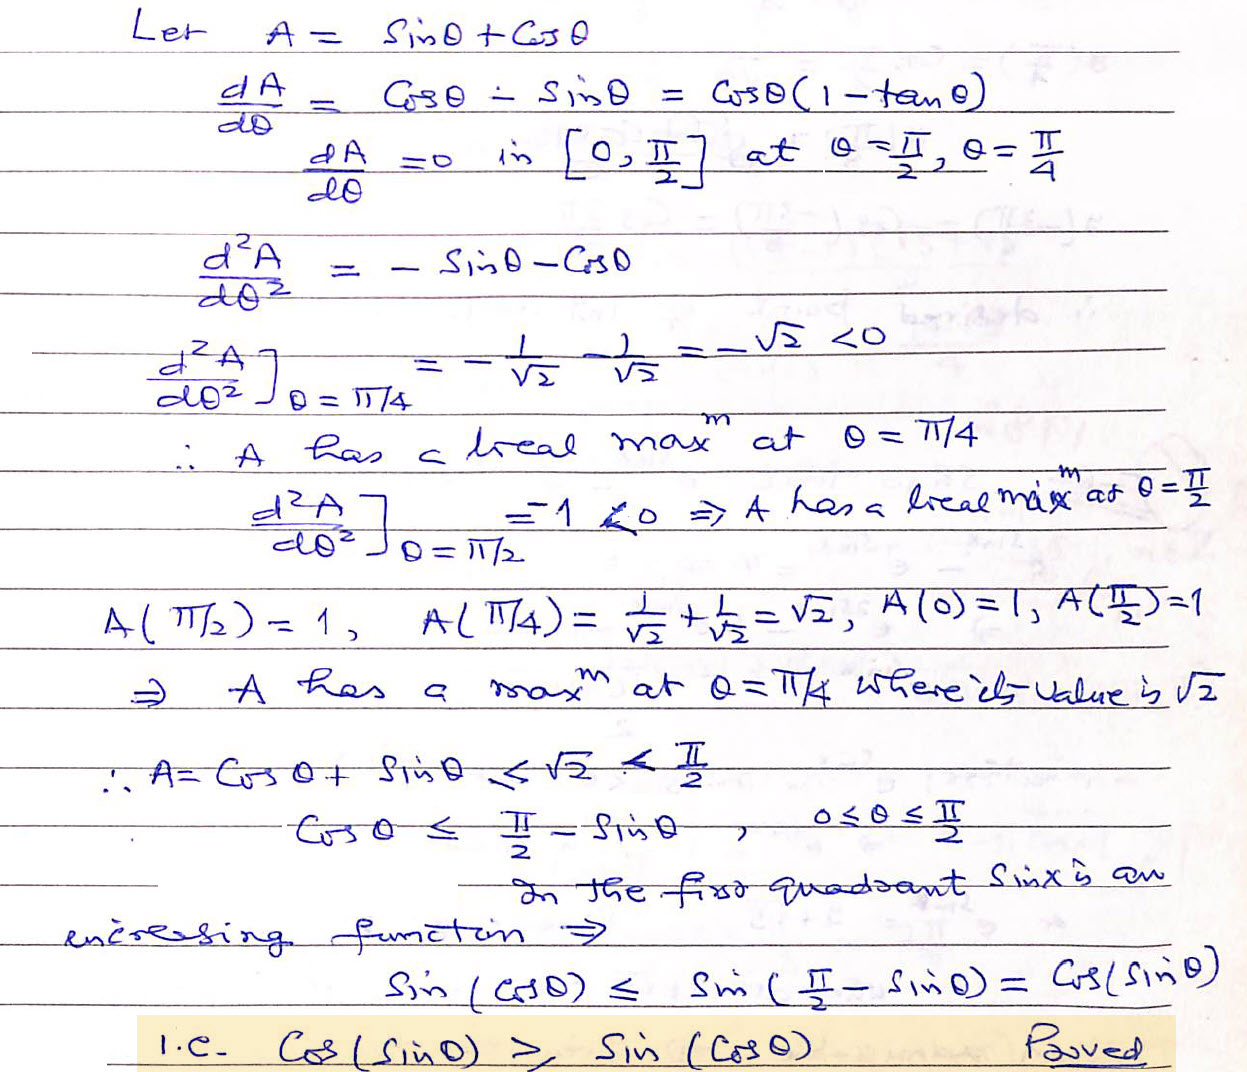 Let A = Sinθ + Cosθ
dA/dθ = Cosθ - Sinθ = Cosθ(1 - tanθ)
dA/dθ = 0 in [0, π/2] at θ = π/2, θ = π/4
d²A/dθ² = - Sinθ - Cosθ
d²A/dθ²]θ = π/4 = - 1/√2 - 1/√2 = - √2 < 0
∴ A has a local maxᵐ at θ = π/4
d²A/dθ²]θ = π/2 = -1 < 0 ⇒ A has a local maxᵐ at θ = π/2
A(π/2) = 1, A(π/4) = 1/√2 + 1/√2 = √2, A(0) = 1, A(π/2) = 1
⇒ A has a maxᵐ at θ = π/4 where its value is √2
∴ A = Cosθ + Sinθ ≤ √2 < π/2
Cosθ ≤ π/2 - Sinθ , 0 ≤ θ ≤ π/2
In the first quadrant Sinx is an
increasing function ⇒
Sin(Cosθ) ≤ Sin(π/2 - Sinθ) = Cos(Sinθ)
i.e. Cos(Sinθ) ≥ Sin(Cosθ) Proved